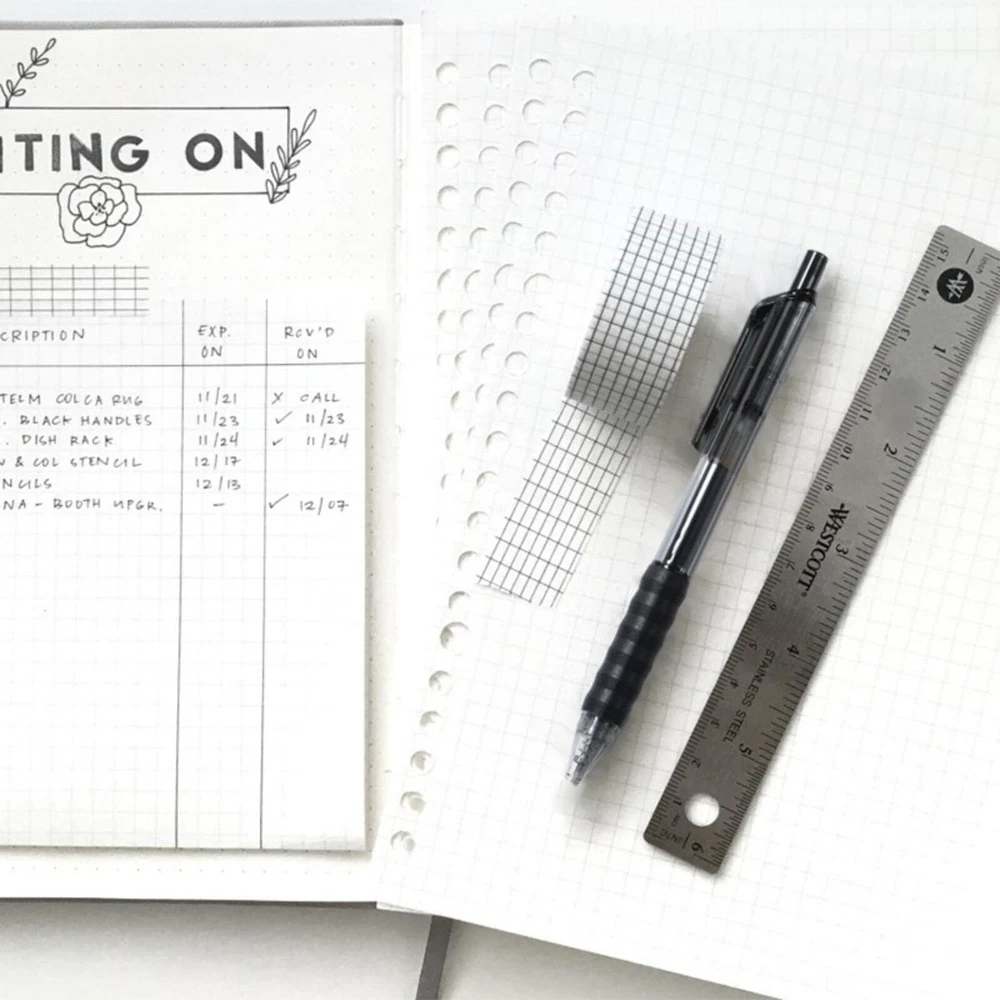 ITING ON
CRIPTION EXP. ON RCV'D ON
TELM COLCA RUG 11/21 X CALL
. BLACK HANDLES 11/23 ✓ 11/23
. DISH RACK 11/24 ✓ 11/24
& COL STENCIL 12/17
NCILS 12/13
NA - BOOTH UPGR. - ✓ 12/07
WESTCOTT®
STAINLESS STEEL
1 2 3 4 5 6
1 2 3 4 5 6 7 8 9 10 11 12 13 14 15